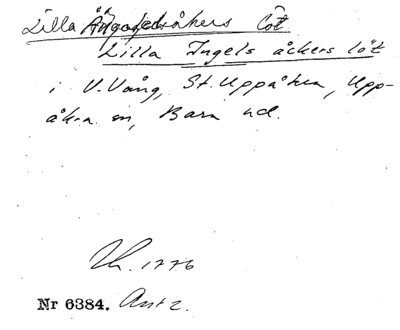 Lilla Ängelsåkers löt
Lilla Ingels åckers löt
i V. Vång, St. Uppåkra, Upp-
åkra sn, Bara hd.
Lh. 1776
Nr 6384. Ant 2.